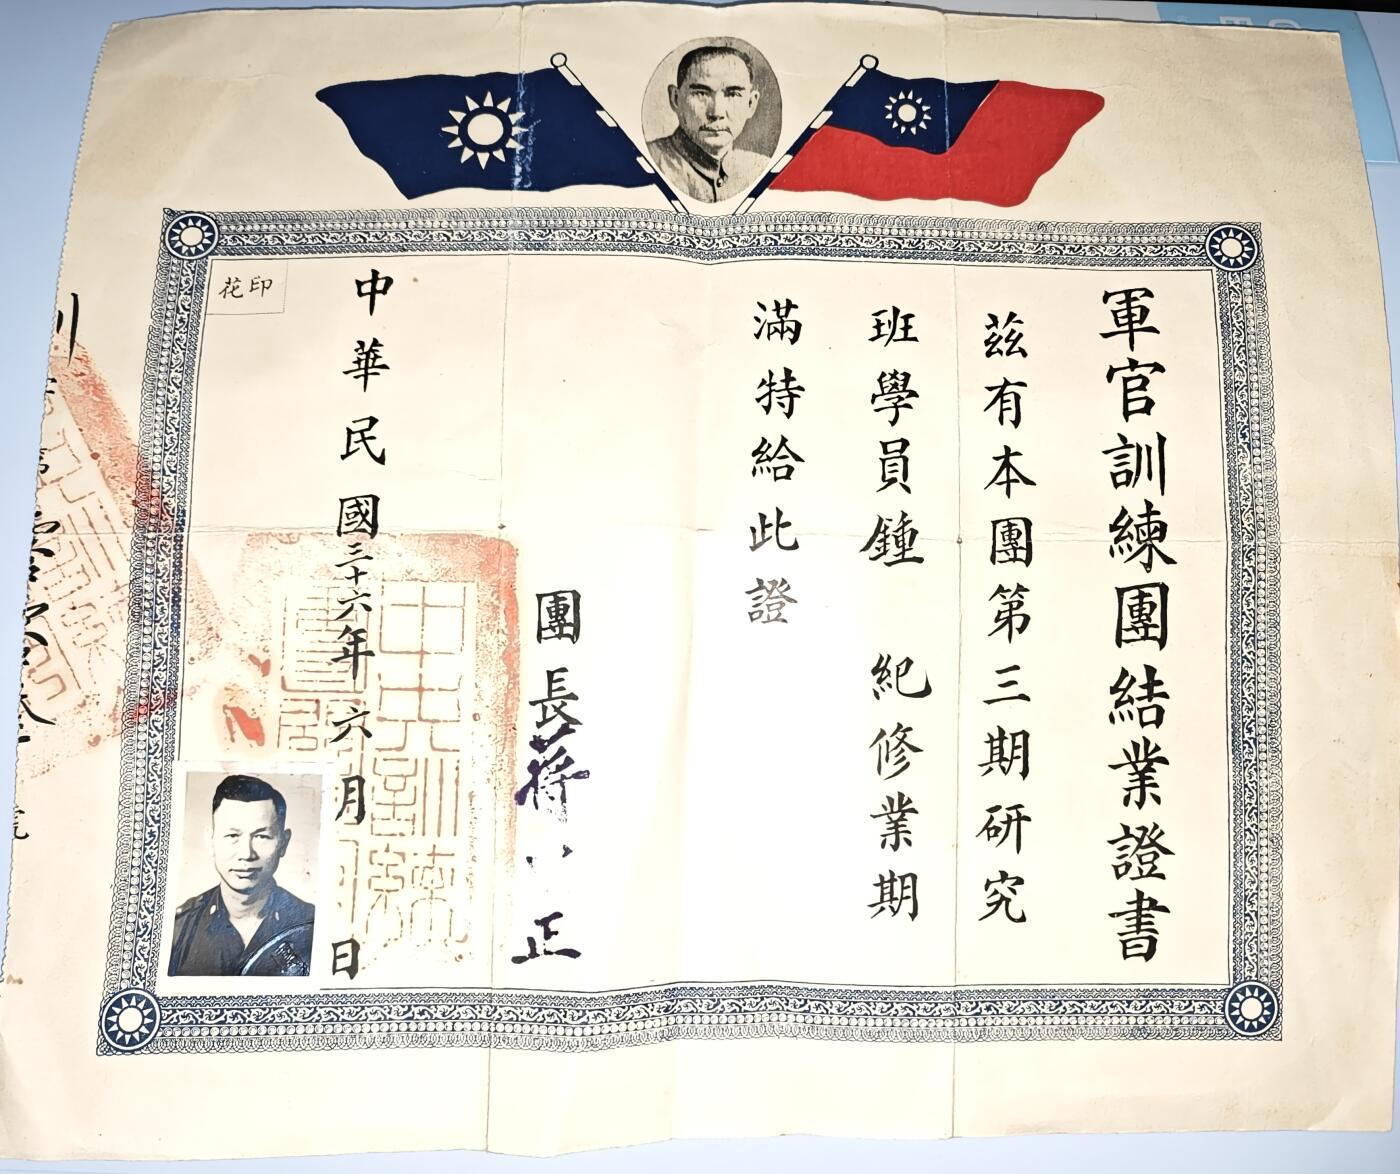 軍官訓練團結業證書
茲有本團第三期研究
班學員鍾 紀修業期
滿特給此證
團長蔣 正
中華民國三十六年六月 日
印花
訓 第